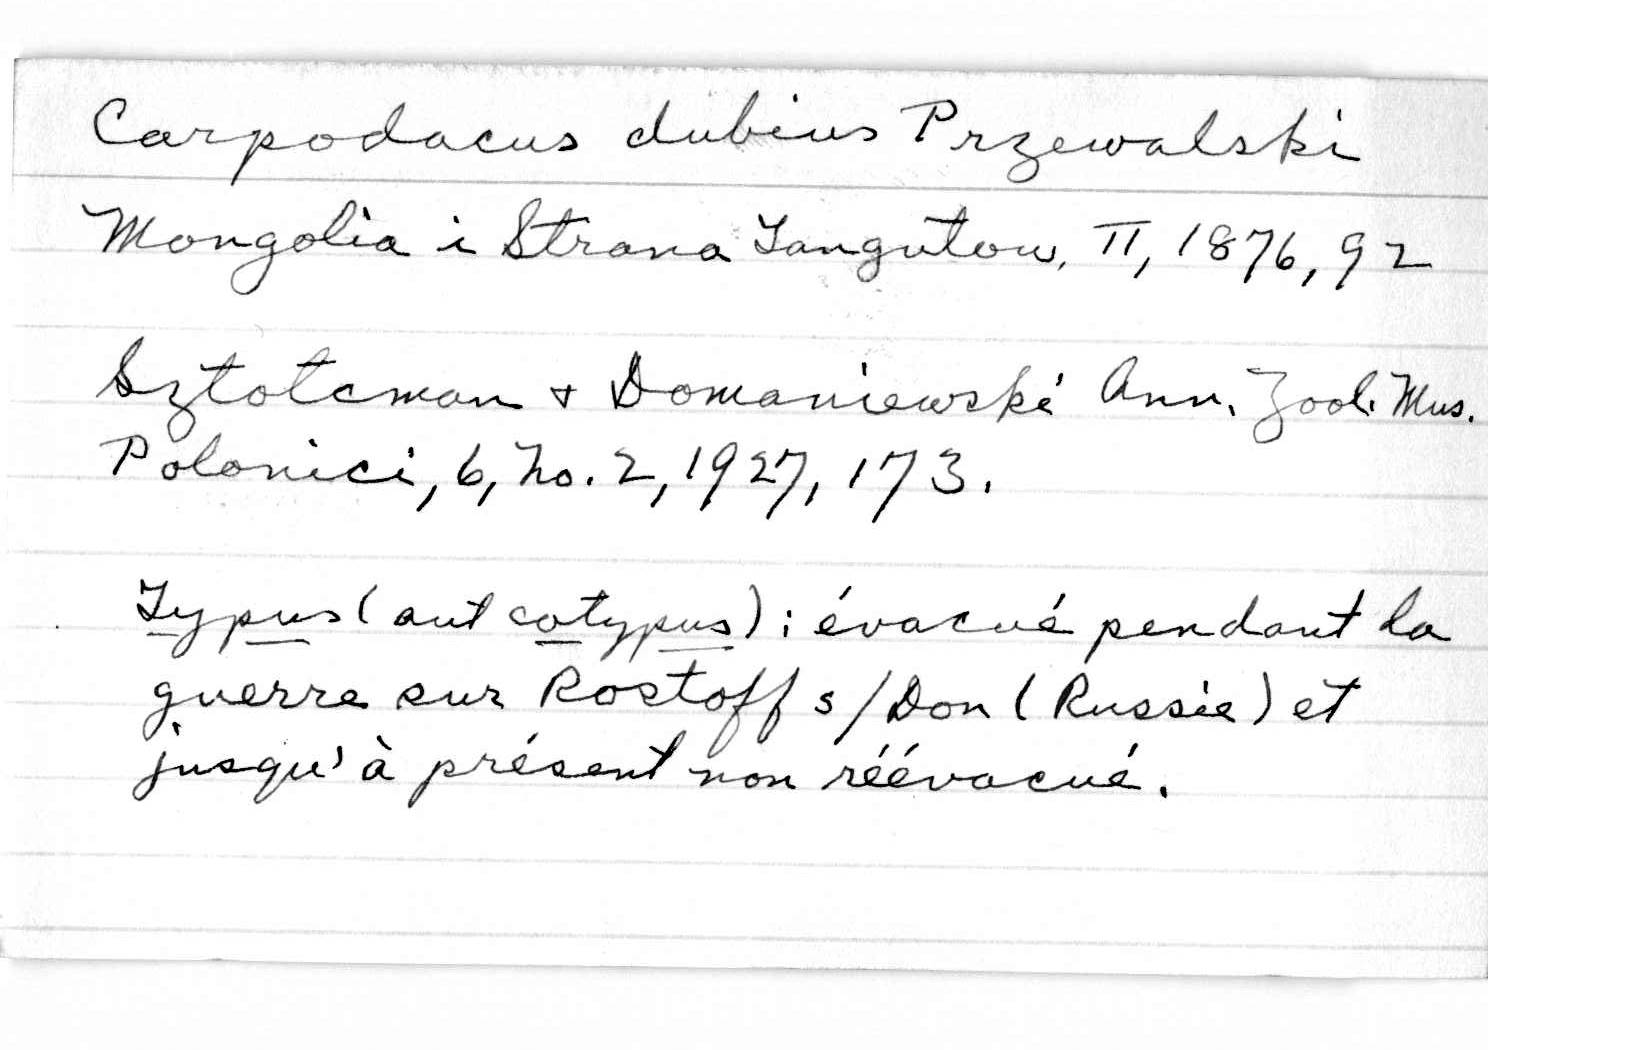 Carpodacus dubius Przewalski
Mongolia i Strana Tangutow, II, 1876, 92
Sztolcman + Domaniewski Ann. Zool. Mus.
Polonici, 6, no. 2, 1927, 173.
Typus (aut cotypus); évacué pendant la
guerre sur Rostoff s/Don (Russie) et
jusqu'à présent non réévacué.